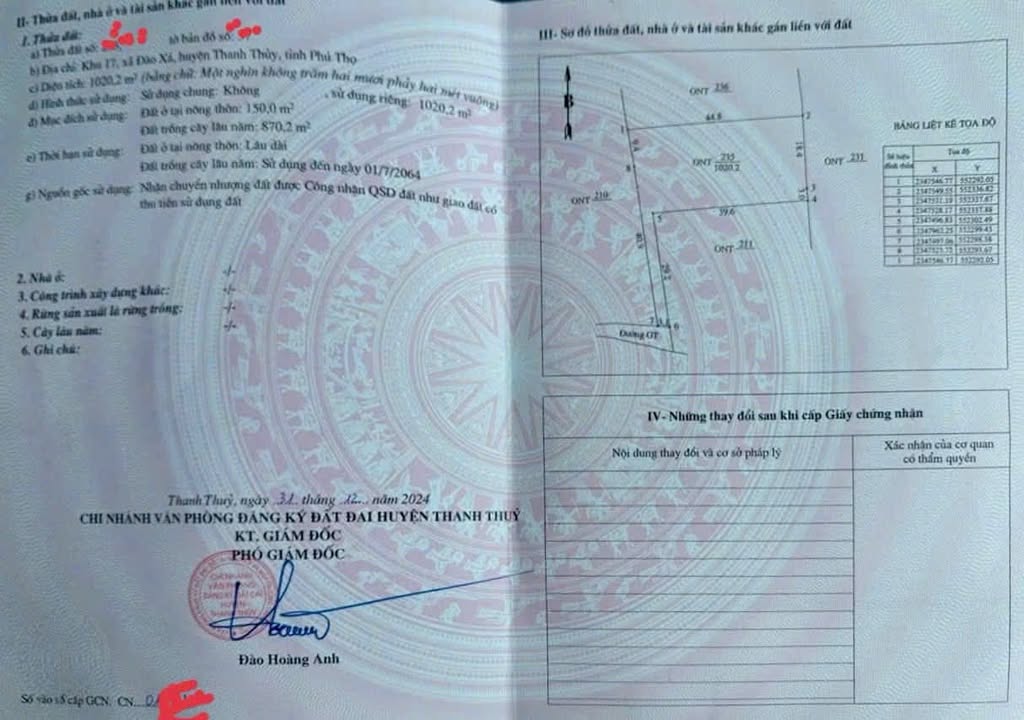 II- Thửa đất, nhà ở và tài sản khác gắn liền với đất
1. Thửa đất:
a) Thửa đất số: tờ bản đồ số:
b) Địa chỉ: Khu 17, xã Đào Xá, huyện Thanh Thủy, tỉnh Phú Thọ
c) Diện tích: 1020,2 m² (bằng chữ: Một nghìn không trăm hai mươi phẩy hai mét vuông)
d) Hình thức sử dụng: Sử dụng chung: Không , sử dụng riêng: 1020,2 m²
đ) Mục đích sử dụng: Đất ở tại nông thôn: 150,0 m²
Đất trồng cây lâu năm: 870,2 m²
e) Thời hạn sử dụng: Đất ở tại nông thôn: Lâu dài
Đất trồng cây lâu năm: Sử dụng đến ngày 01/7/2064
g) Nguồn gốc sử dụng: Nhận chuyển nhượng đất được Công nhận QSD đất như giao đất có
thu tiền sử dụng đất
2. Nhà ở: -/-
3. Công trình xây dựng khác: -/-
4. Rừng sản xuất là rừng trồng: -/-
5. Cây lâu năm: -/-
6. Ghi chú:
Thanh Thuỷ, ngày 31 tháng 12 năm 2024
CHI NHÁNH VĂN PHÒNG ĐĂNG KÝ ĐẤT ĐAI HUYỆN THANH THUỶ
KT. GIÁM ĐỐC
PHÓ GIÁM ĐỐC
CHI NHÁNH
VĂN PHÒNG
ĐĂNG KÝ ĐẤT ĐAI
HUYỆN
THANH THỦY
Đào Hoàng Anh
Số vào sổ cấp GCN. CN
III- Sơ đồ thửa đất, nhà ở và tài sản khác gắn liền với đất
B
ONT 236
1 44.8 2
9.4
8
ONT 235
1020.2
18.4
ONT 231
ONT 210
3
4
5 39.6
ONT 211
29.2
7 6
Đường GT
BẢNG LIỆT KÊ TỌA ĐỘ
Số hiệu
đỉnh thửa
Tọa độ
X Y
1 2347546.77 552292.05
2 2347549.55 552336.82
3 552337.67
4
5 552302.49
6
7
8
1 2347546.77 552292.05
IV- Những thay đổi sau khi cấp Giấy chứng nhận
Nội dung thay đổi và cơ sở pháp lý
Xác nhận của cơ quan
có thẩm quyền